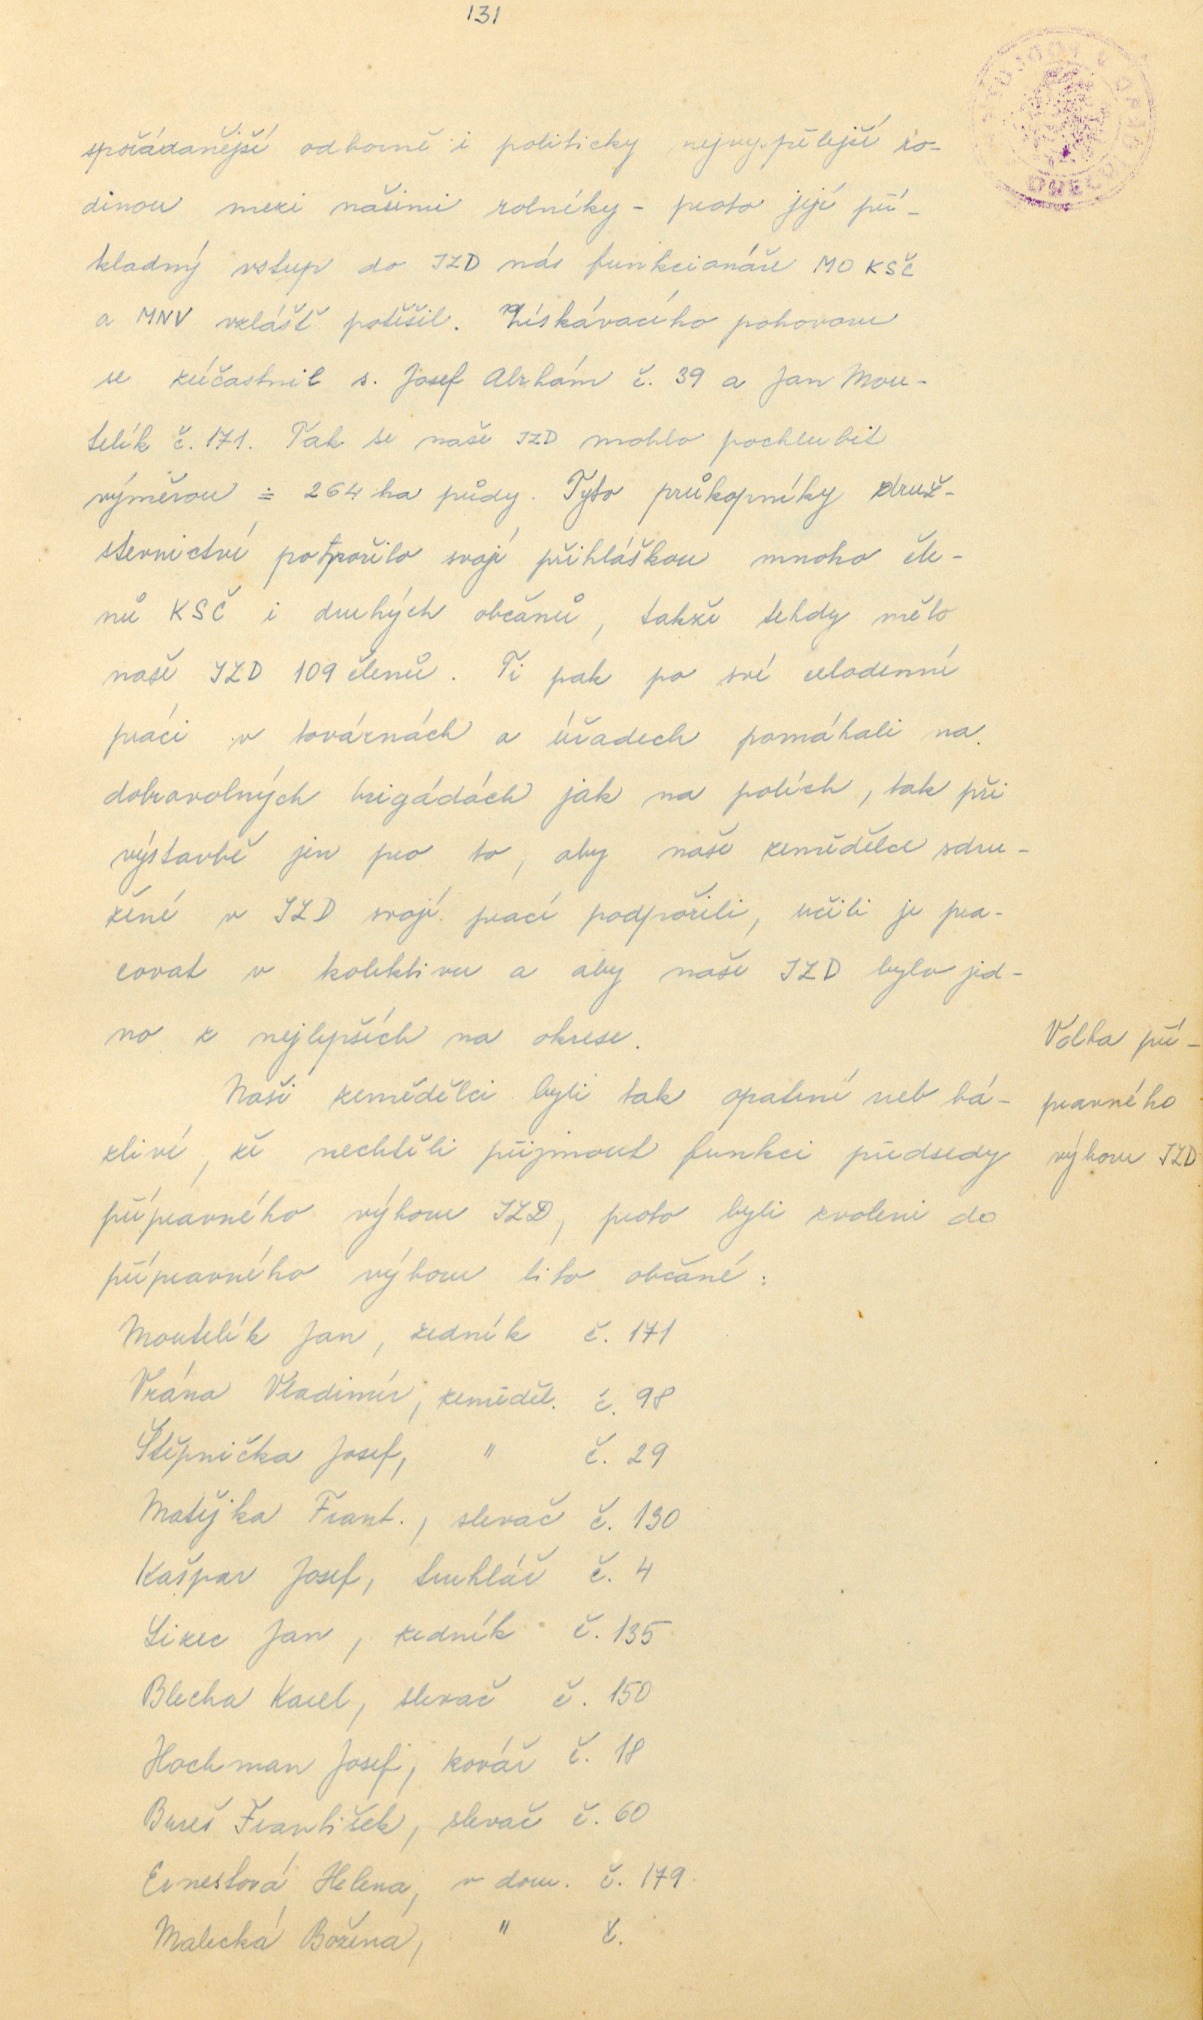 131
spořádanější odborně i politicky nejvyspělejší ro-
dinou mezi našimi rolníky - proto její pří-
kladný vstup do JZD nás funkcionáře MO KSČ
a MNV vzláště potěšil. Získávacího pohovoru
se zúčastnil s. Josef Abrhám č. 39 a Jan Mou-
telík č. 171. Tak se naše JZD mohlo pochlubit
výměrou ≐ 264 ha půdy. Tyto průkopníky druž-
stevnictví potpořilo svojí přihláškou mnoho čle-
nů KSČ i druhých občanů, takže tehdy mělo
naše JZD 109 členů. Ti pak po své celodenní
práci v továrnách a úřadech pomáhali na
dobrovolných brigádách jak na polích, tak při
výstavbě jen pro to, aby naše zemědělce sdru-
žené v JZD svojí prací podpořili, učili je pra-
covat v kolektivu a aby naše JZD bylo jed-
no z nejlepších na okrese.
Naši zemědělci byli tak opatrní neb bá-
zliví, že nechtěli přijmout funkci předsedy
přípravného výboru JZD, proto byli zvoleni do
přípravného výboru tito občané:
Volba pří-
pravného
výboru JZD
Moutelík Jan, zedník č. 171
Vrána Vladimír, zeměděl. č. 98
Štěpnička Josef, " č. 29
Matějka Frant., slevač č. 130
Kašpar Josef, truhlář č. 4
Sizec Jan, zedník č. 135
Blecha Karel, slevač č. 150
Hochman Josef, kovář č. 18
Bureš František, slevač č. 60
Ernestová Helena, v dom. č. 179.
Malecká Božena, " č.